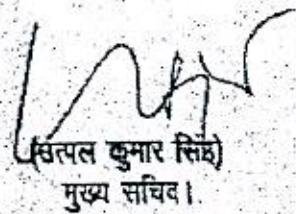 (उत्पल कुमार सिंह)
मुख्य सचिव।